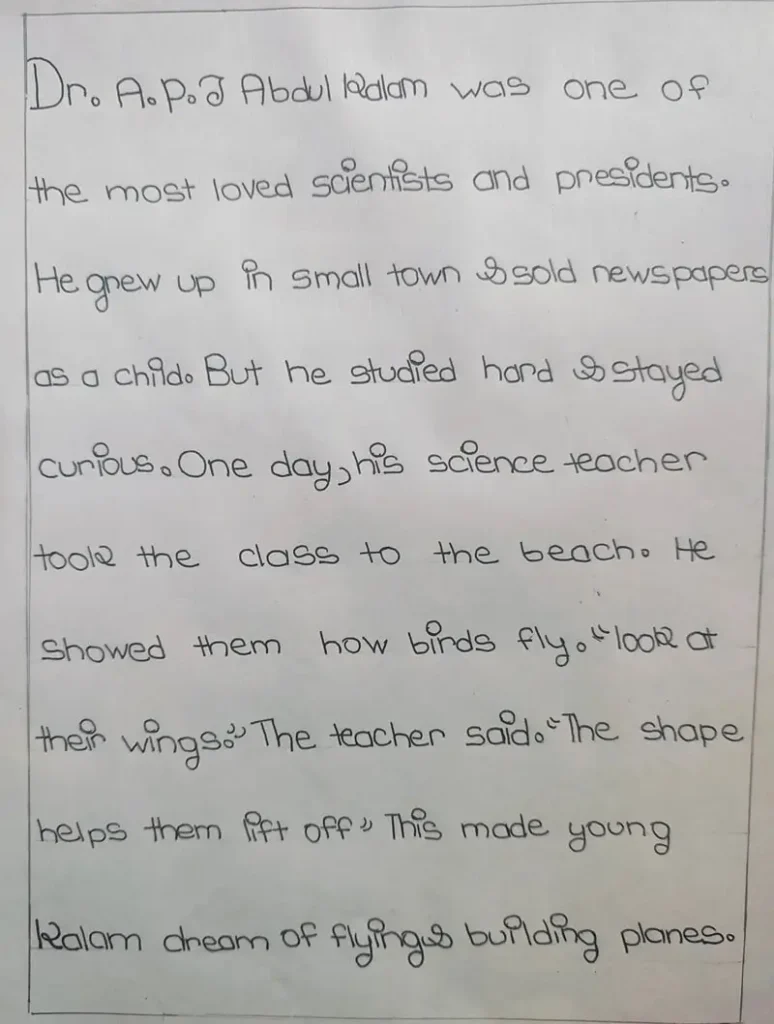 Dr. A.P.J Abdul Kalam was one of
the most loved scientists and presidents.
He grew up in small town & sold newspapers
as a child. But he studied hard & stayed
curious. One day, his science teacher
took the class to the beach. He
showed them how birds fly. "look at
their wings." The teacher said. "The shape
helps them lift off" This made young
Kalam dream of flying & building planes.